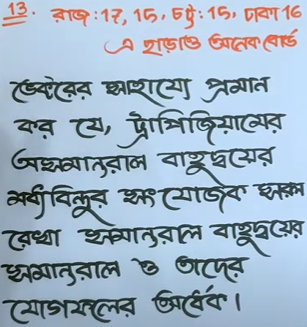 13. রাজ: 17, 15, চট্ট: 15, ঢাকা 16
এ ছাড়াও অনেক বোর্ড
ভেক্টরের সাহায্যে প্রমান
কর যে, ট্রাপিজিয়ামের
অসমান্তরাল বাহুদ্বয়ের
মধ্যবিন্দুর সংযোজক সরল
রেখা সমান্তরাল বাহুদ্বয়ের
সমান্তরাল ও তাদের
যোগফলের অর্ধেক।